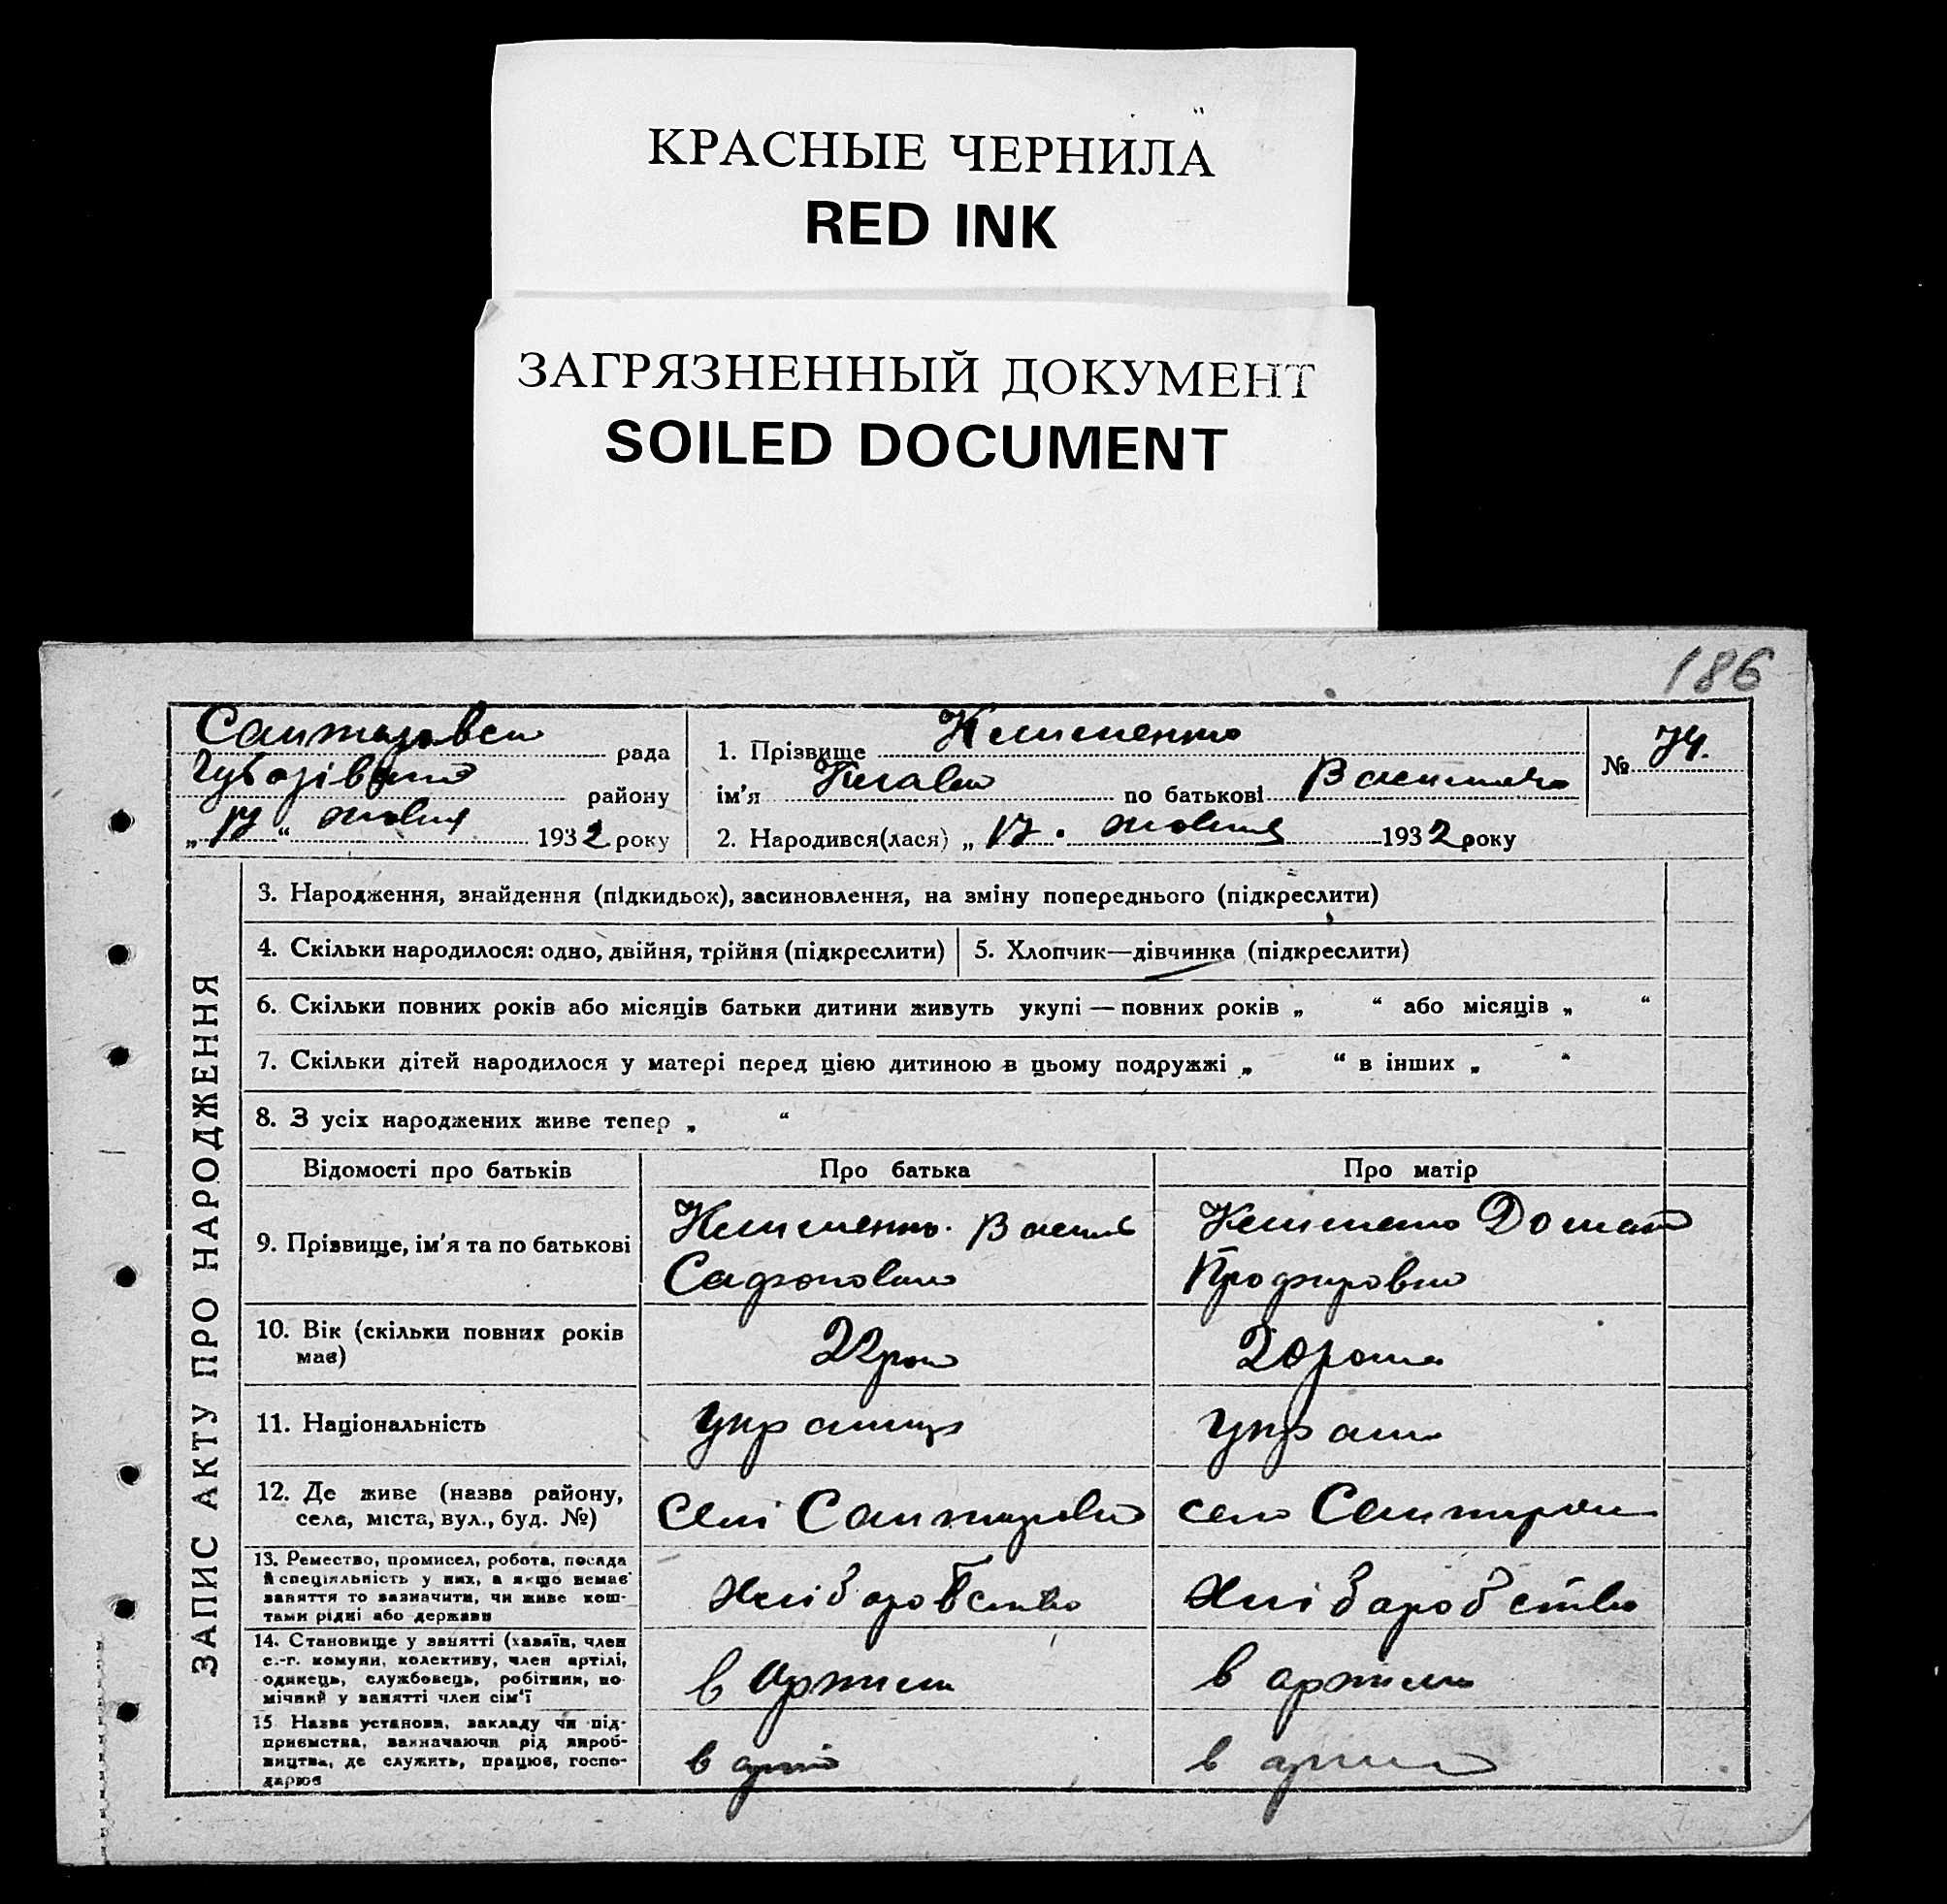 КРАСНЫЕ ЧЕРНИЛА
RED INK
ЗАГРЯЗНЕННЫЙ ДОКУМЕНТ
SOILED DOCUMENT
186
рада
району
„17“ 1932 року
1. Прізвище Клименко
ім'я по батькові
2. Народився(лася) „17. 1932 року
№ 74.
ЗАПИС АКТУ ПРО НАРОДЖЕННЯ
3. Народження, знайдення (підкидьок), засиновлення, на зміну попереднього (підкреслити)
4. Скільки народилося: одно, двійня, трійня (підкреслити)
5. Хлопчик—дівчинка (підкреслити)
6. Скільки повних років або місяців батьки дитини живуть укупі — повних років „ “ або місяців „ “
7. Скільки дітей народилося у матері перед цією дитиною в цьому подружжі „ “ в інших „ “
8. З усіх народжених живе тепер „ “
Відомості про батьків
Про батька
Про матір
9. Прізвище, ім'я та по батькові
Клименко Василь
Клименко
10. Вік (скільки повних років
має)
22
20
11. Національність
12. Де живе (назва району,
села, міста, вул., буд. №)
село
13. Ремество, промисел, робота, посада
й спеціяльність у них, а якщо немає
заняття то зазначити, чи живе кош-
тами рідні або держави
Хліборобство
Хліборобство
14. Становище у занятті (хазяїн, член
с.-г. комуни, колективу, член артілі,
одинець, службовець, робітник, по-
мічний у занятті член сім'ї
в
в
15 Назва установи, закладу чи під-
приємства, зазначаючи рід вироб-
ництва, де служить, працює, госпо-
дарює
в
в